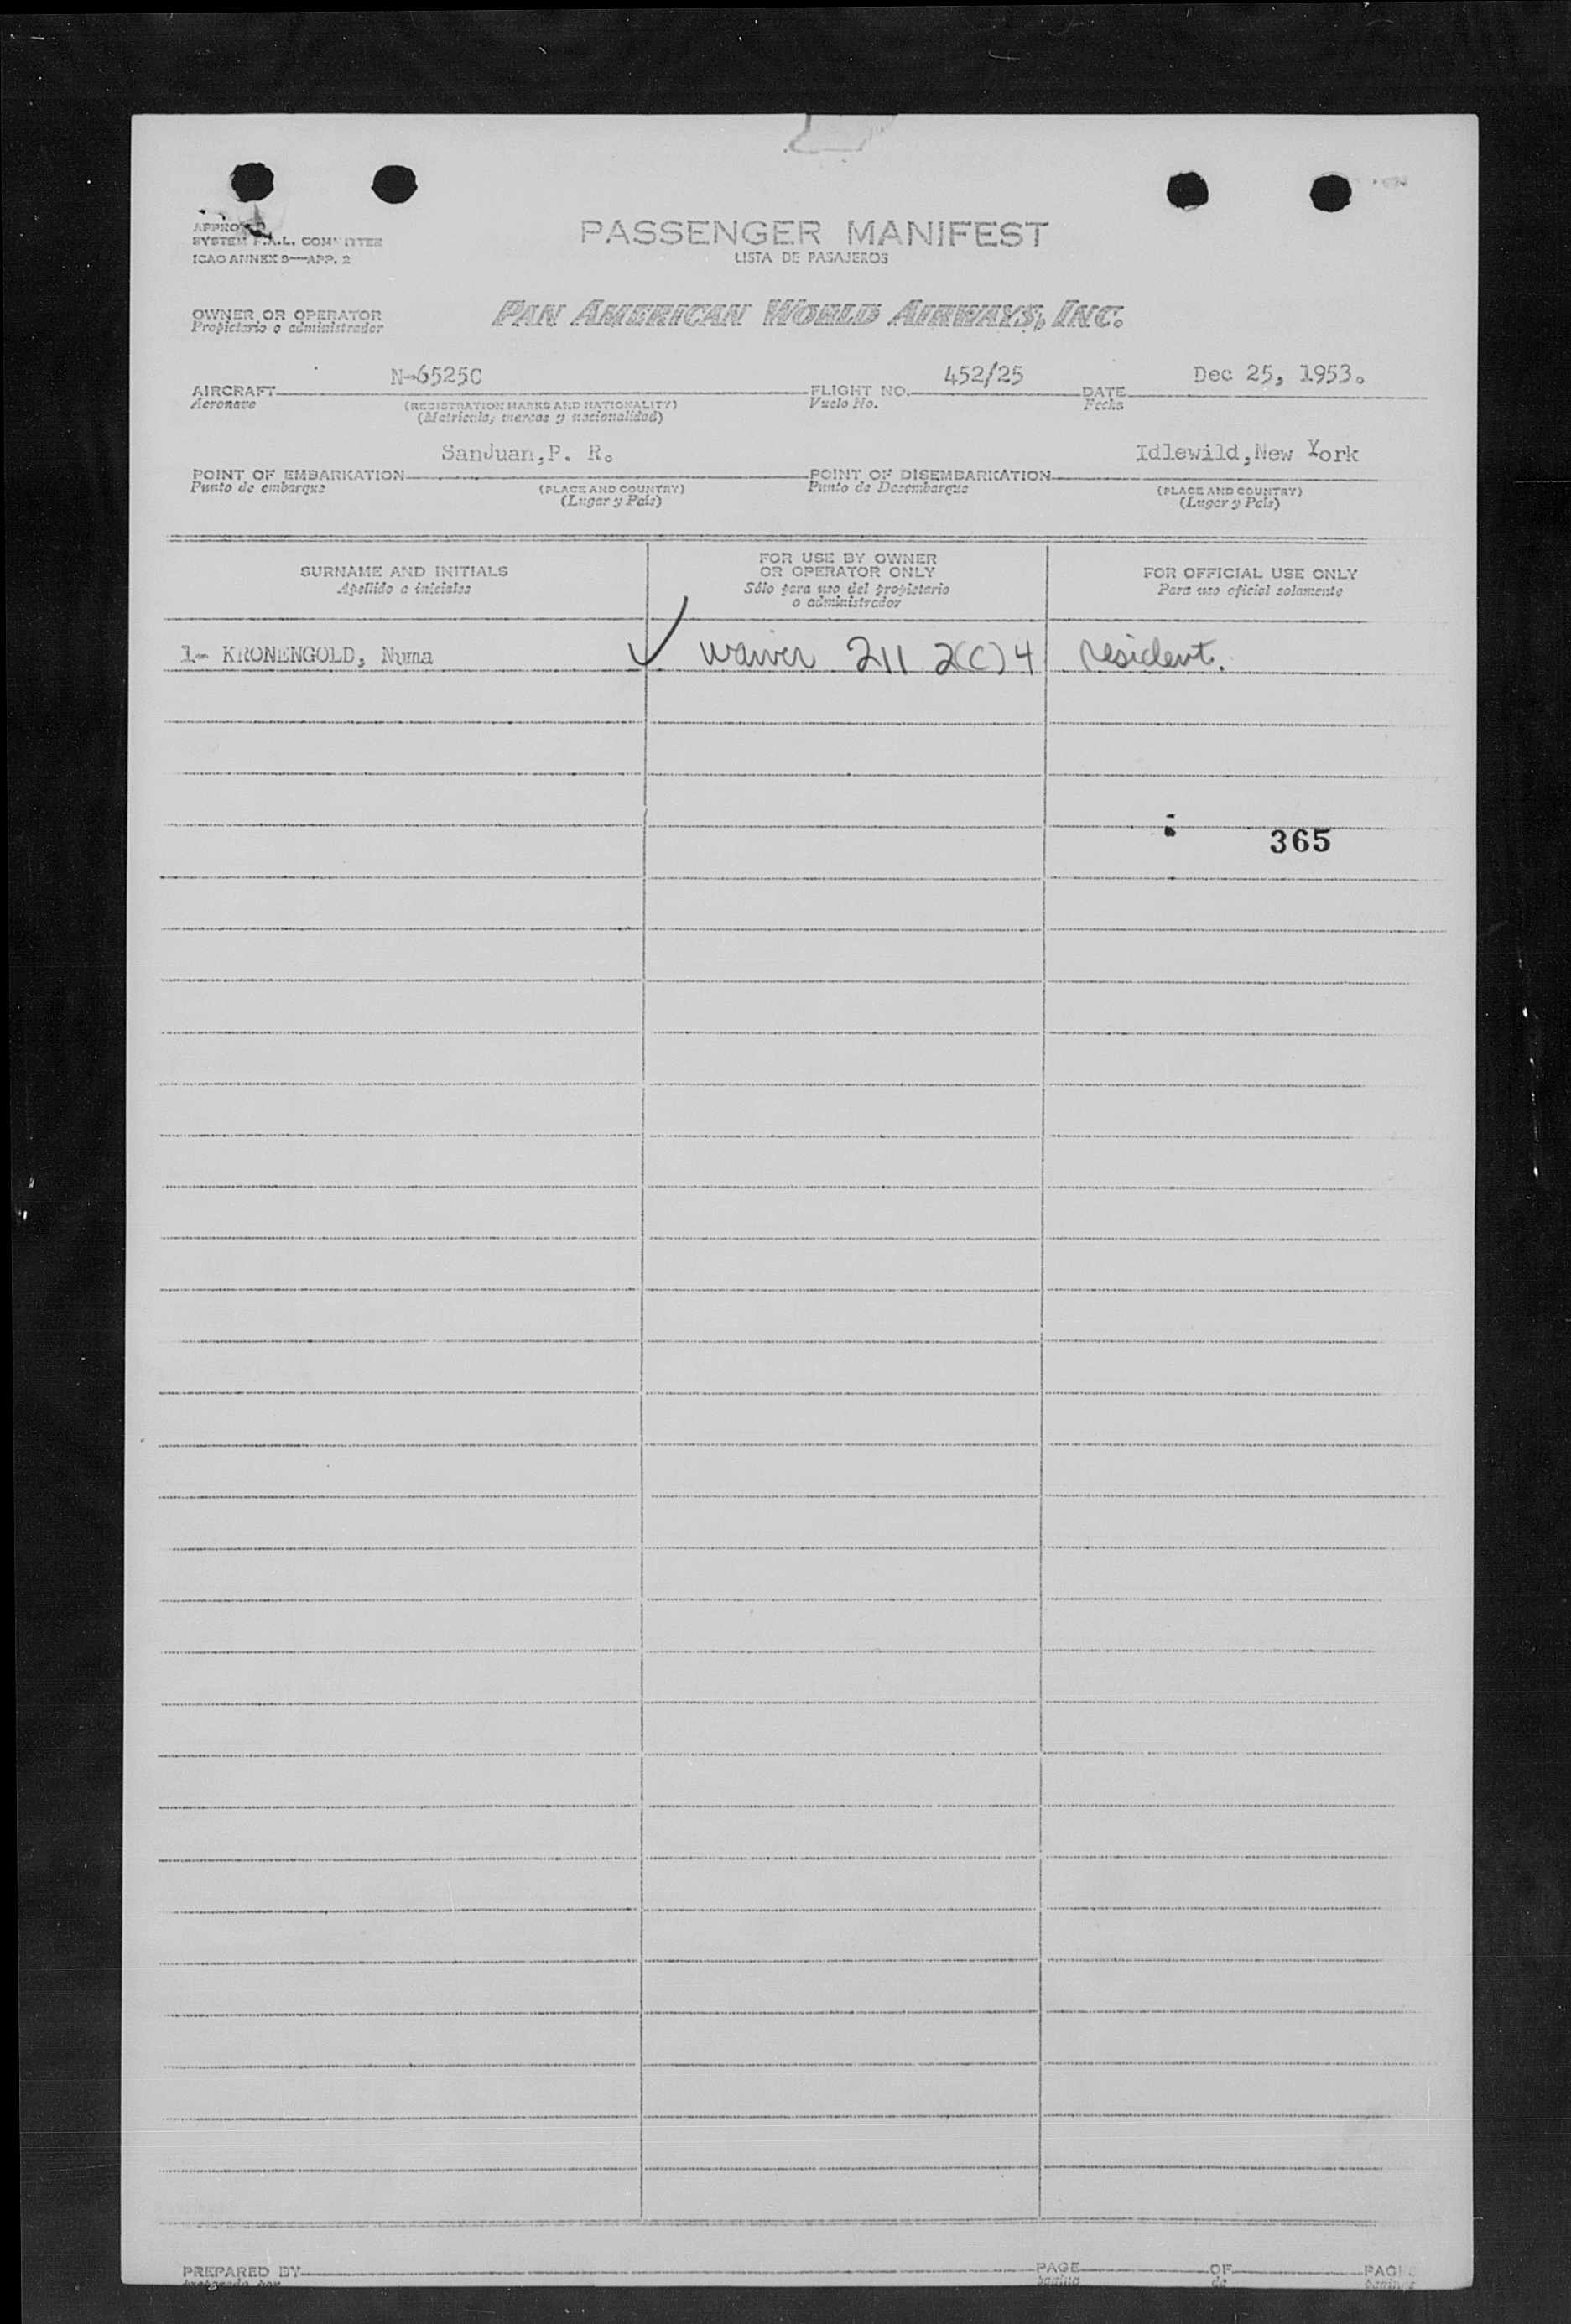 APPROVED
SYSTEM F.A.L. COMMITTEE
ICAO ANNEX 9—APP. 2
PASSENGER MANIFEST
LISTA DE PASAJEROS
OWNER OR OPERATOR
Propietario o administrador
PAN AMERICAN WORLD AIRWAYS, INC.
AIRCRAFT N-6525C FLIGHT NO. 452/25 DATE Dec 25, 1953.
Aeronave (REGISTRATION MARKS AND NATIONALITY) Vuelo No. Fecha
(Matricula, marcas y nacionalidad)
POINT OF EMBARKATION SanJuan,P. R. POINT OF DISEMBARKATION Idlewild,New York
Punto de embarque (PLACE AND COUNTRY) Punto de Desembarque (PLACE AND COUNTRY)
(Lugar y País) (Lugar y País)
SURNAME AND INITIALS
Apellido e iniciales
FOR USE BY OWNER
OR OPERATOR ONLY
Sólo para uso del propietario
o administrador
FOR OFFICIAL USE ONLY
Para uso oficial solamente
1- KRONENGOLD, Numa ✓ waiver 211 2(c)4 resident.
365
PREPARED BY PAGE OF PAGE